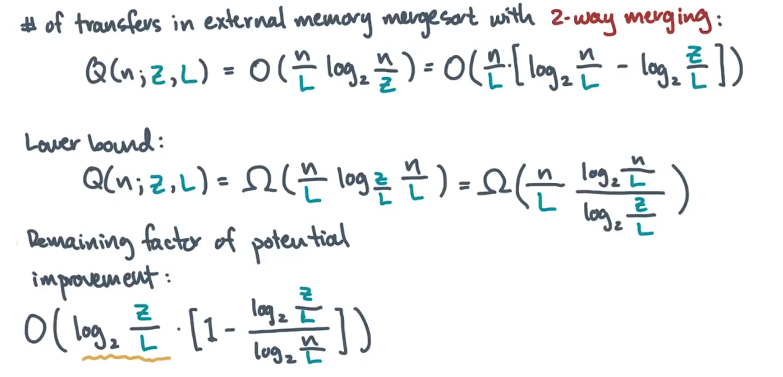 # of transfers in external memory mergesort with 2-way merging:
Q(n;Z,L) = O(n/L log₂ n/Z) = O(n/L·[log₂ n/L - log₂ Z/L])
Lower bound:
Q(n;Z,L) = Ω(n/L log_{Z/L} n/L) = Ω(n/L (log₂ n/L)/(log₂ Z/L))
Remaining factor of potential
improvement:
O(log₂ Z/L · [1 - (log₂ Z/L)/(log₂ n/L)])